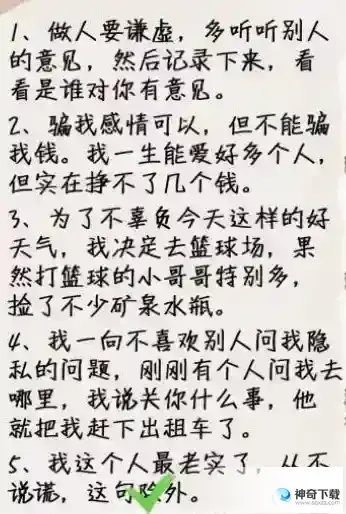 1、做人要谦虚，多听听别人
的意见，然后记录下来，看
看是谁对你有意见。
2、骗我感情可以，但不能骗
我钱。我一生能爱好多个人，
但实在挣不了几个钱。
3、为了不辜负今天这样的好
天气，我决定去篮球场，果
然打篮球的小哥哥特别多，
捡了不少矿泉水瓶。
4、我一向不喜欢别人问我隐
私的问题，刚刚有个人问我去
哪里，我说关你什么事，他
就把我赶下出租车了。
5、我这个人最老实了，从不
说谎，这句除外。
神奇下载